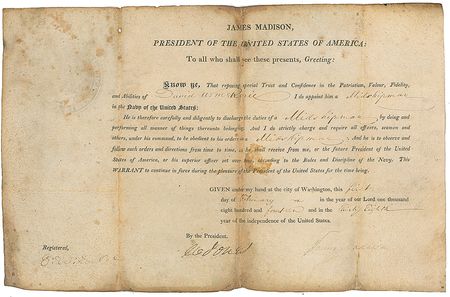 JAMES MADISON,
PRESIDENT OF THE UNITED STATES OF AMERICA:
To all who shall see these presents, Greeting:
Know ye, That reposing special Trust and Confidence in the Patriotism, Valour, Fidelity,
and Abilities of David I do appoint him a Midshipman
in the Navy of the United States:
He is therefore carefully and diligently to discharge the duties of a Midshipman by doing and
performing all manner of things thereunto belonging. And I do strictly charge and require all officers, seamen and
others, under his command, to be obedient to his orders as a Midshipman And he is to observe and
follow such orders and directions from time to time, as he shall receive from me, or the future President of the United
States of America, or his superior officer set over him, according to the Rules and Discipline of the Navy. This
WARRANT to continue in force during the pleasure of the President of the United States for the time being.
GIVEN under my hand at the city of Washington, this first
day of February in the year of our Lord one thousand
eight hundred and fourteen and in the thirty Eighth
year of the independence of the United States.
By the President.
Registered, W Jones James Madison